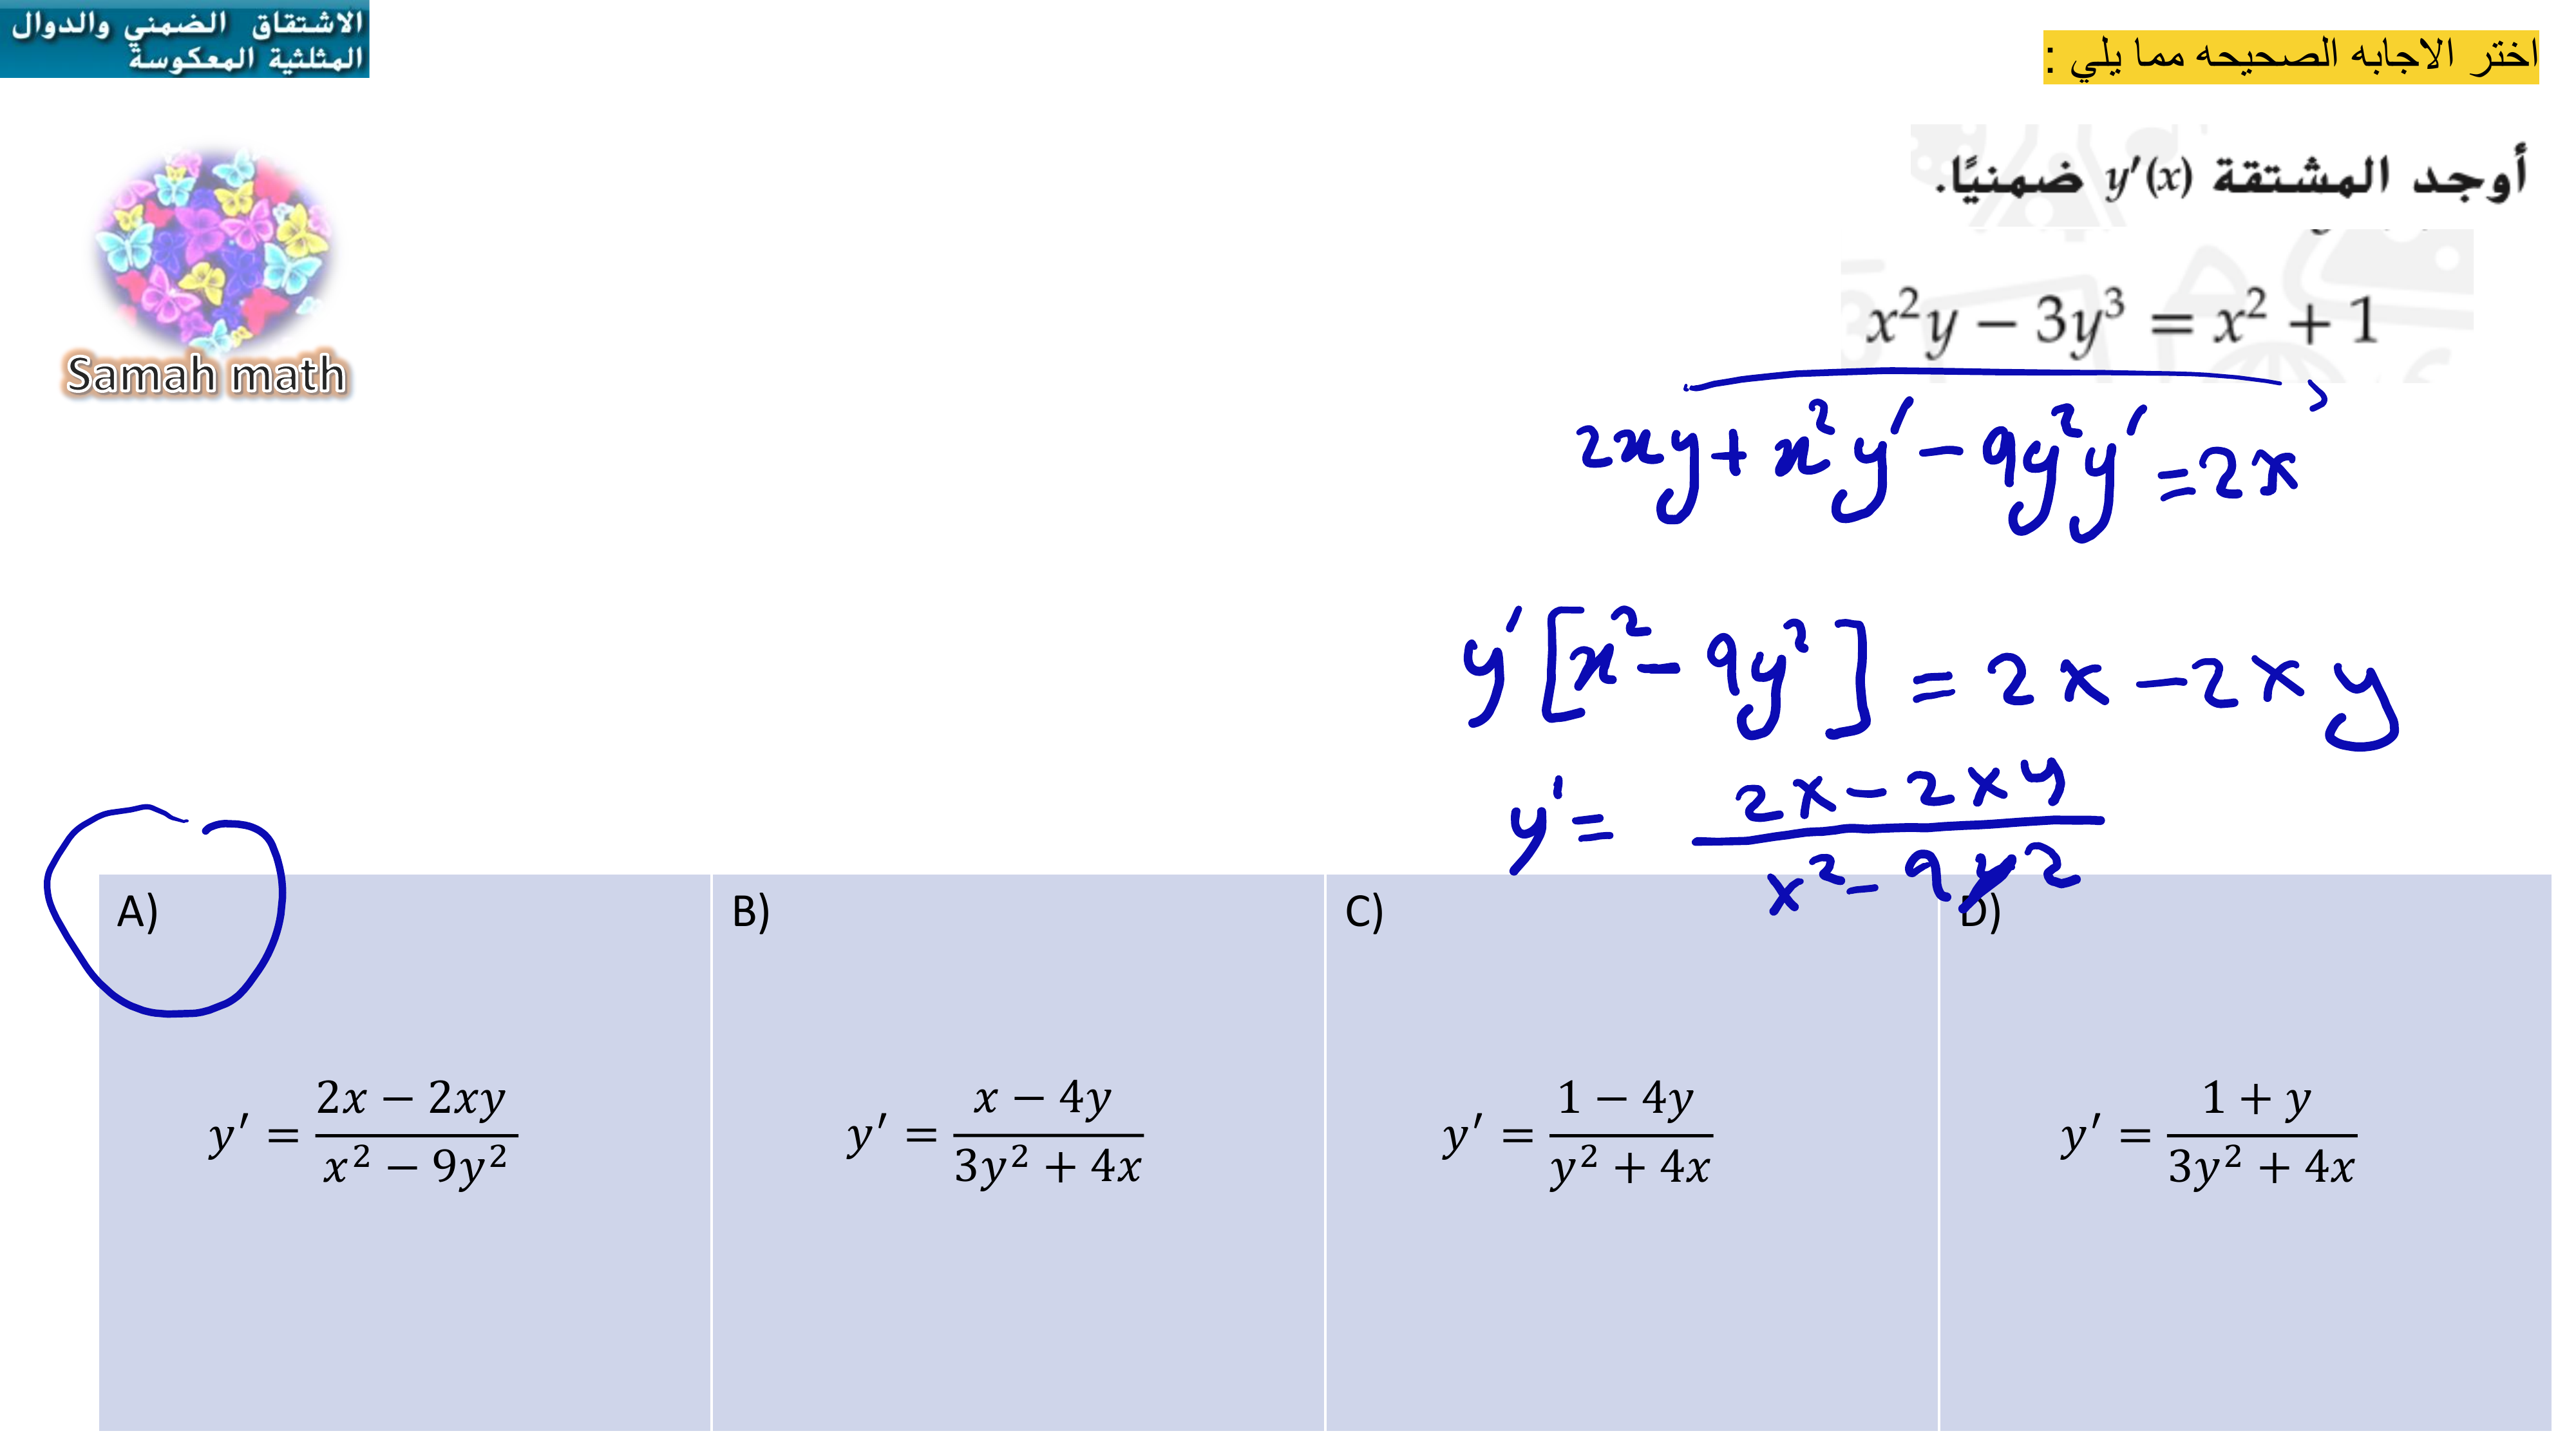 الاشتقاق الضمني والدوال
المثلثية المعكوسة
اختر الاجابه الصحيحه مما يلي :
أوجد المشتقة y′(x) ضمنيًا.
x²y − 3y³ = x² + 1
Samah math
2xy + x²y′ − 9y²y′ = 2x
y′[x² − 9y²] = 2x − 2xy
y′ = (2x − 2xy) / (x² − 9y²)
A)
y′ = (2x − 2xy) / (x² − 9y²)
B)
y′ = (x − 4y) / (3y² + 4x)
C)
y′ = (1 − 4y) / (y² + 4x)
D)
y′ = (1 + y) / (3y² + 4x)